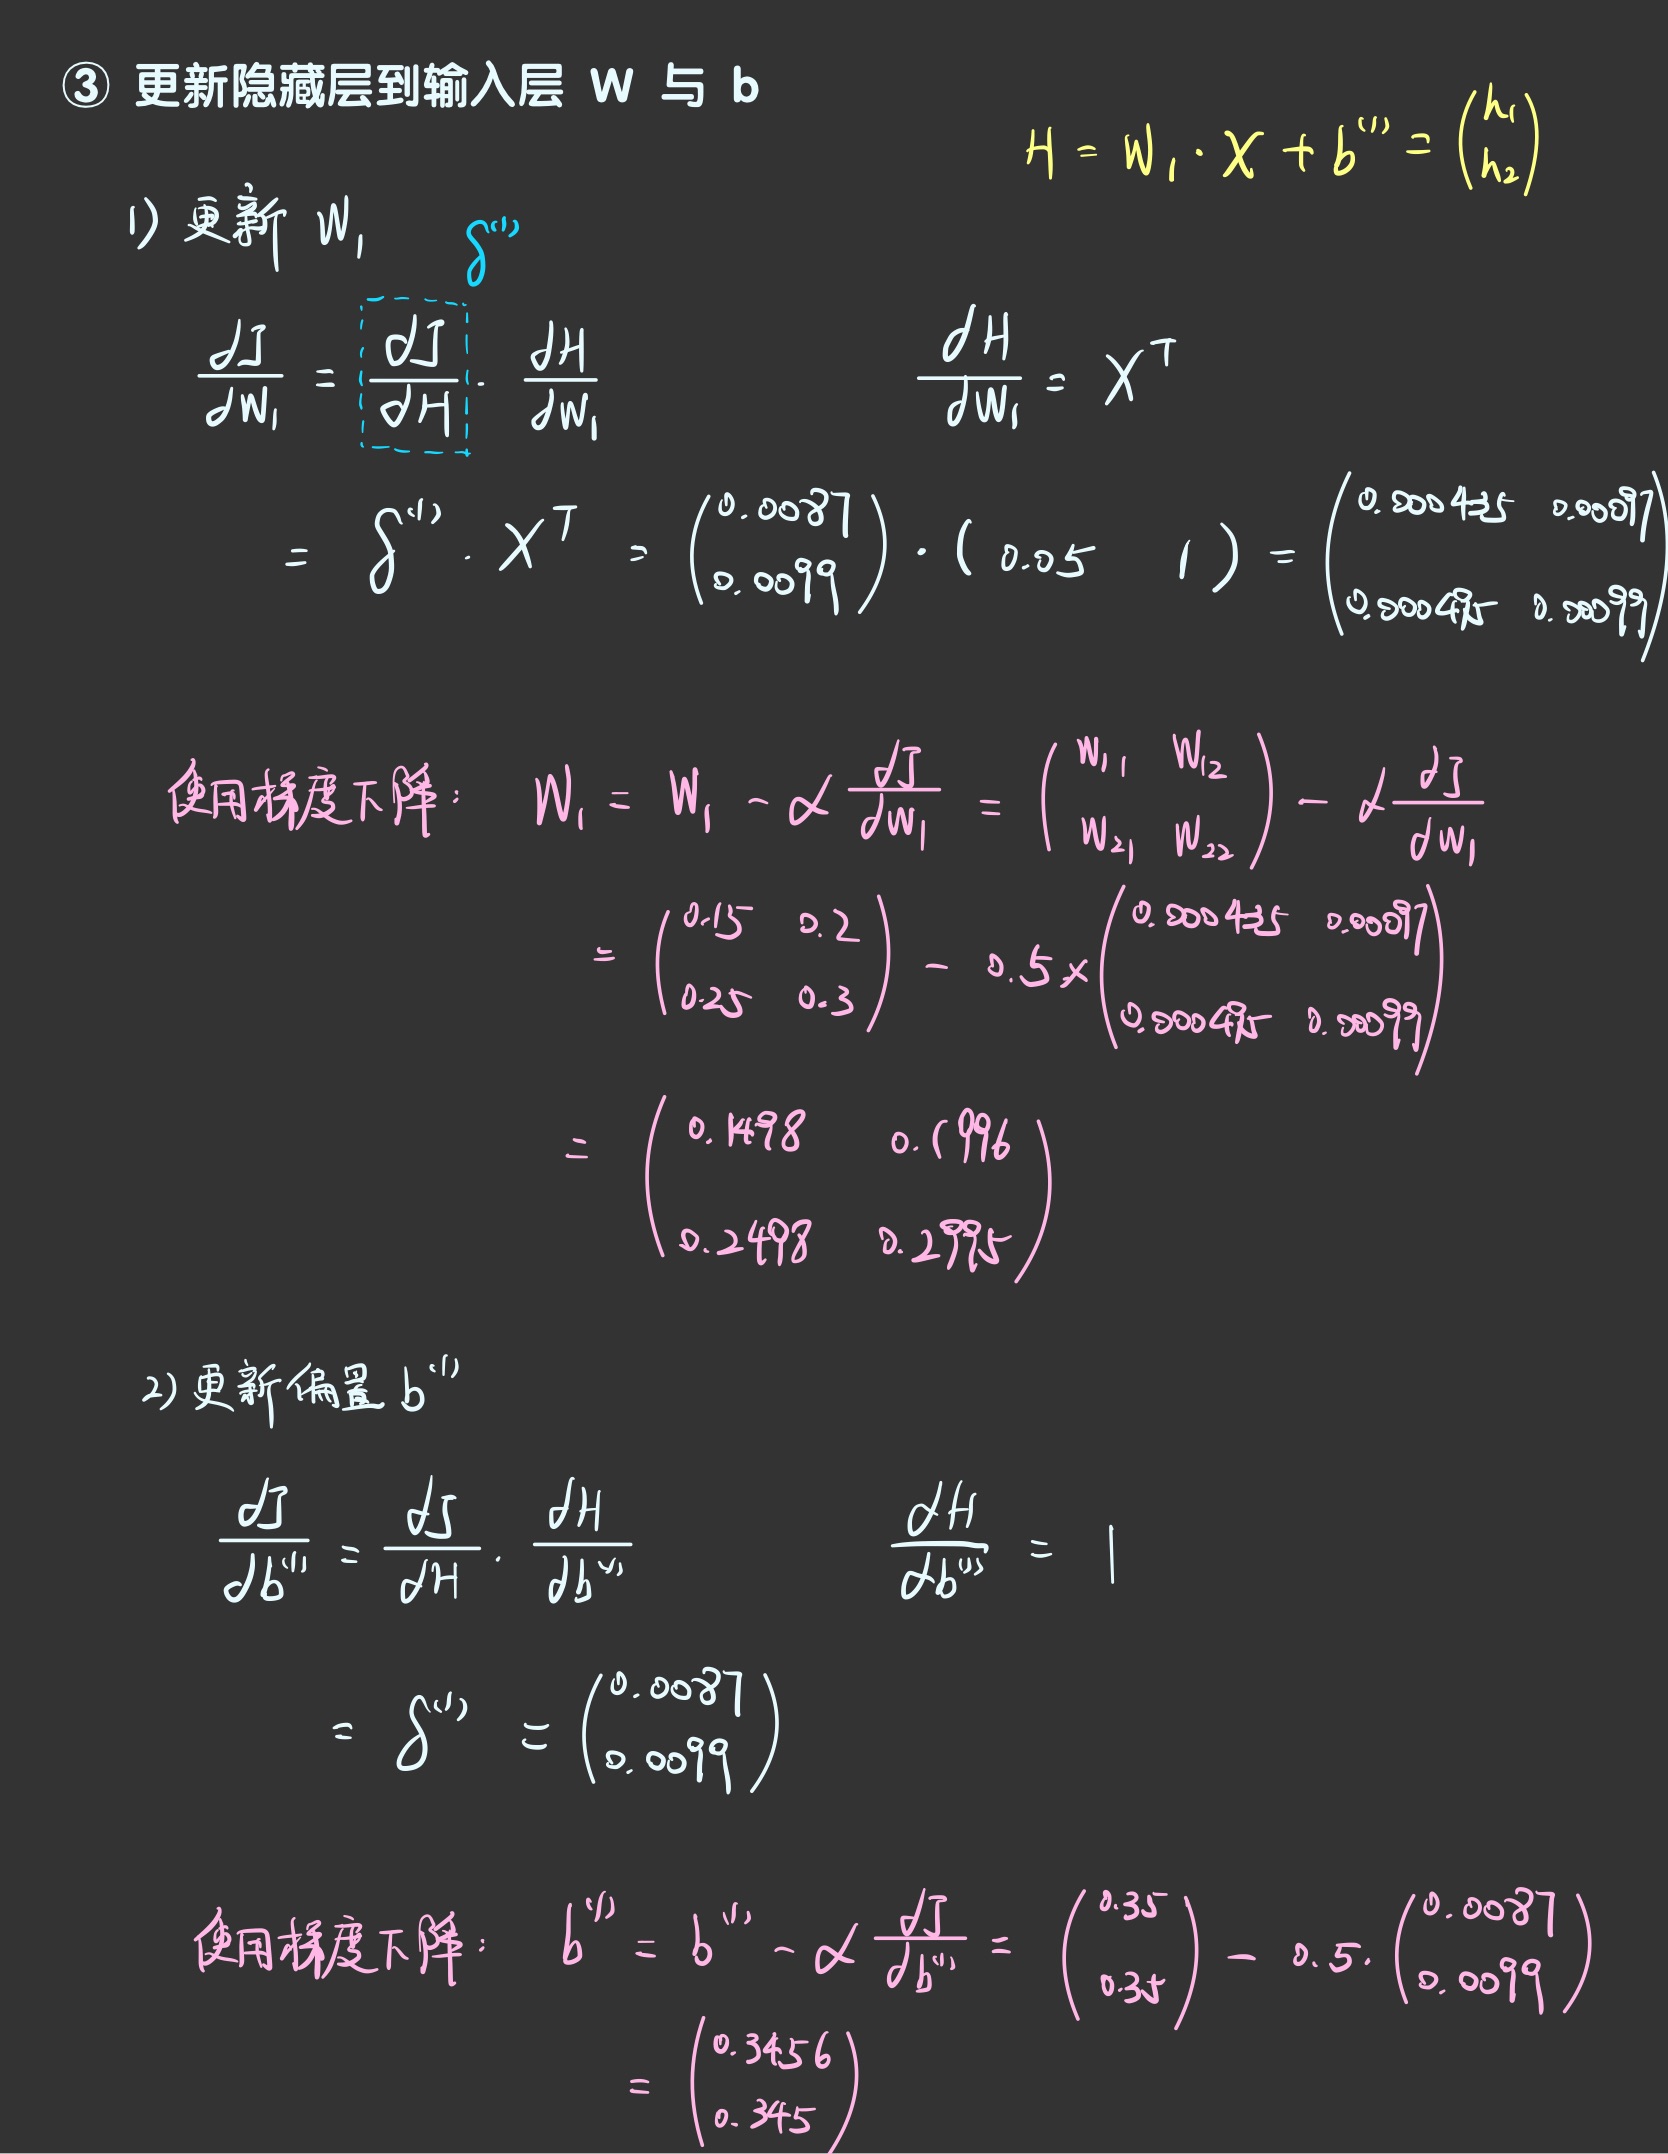 ③ 更新隐藏层到输入层 W 与 b
H = W₁ · X + b⁽¹⁾ = (h₁ h₂)
1) 更新 W₁
δ⁽¹⁾
dJ/dW₁ = dJ/dH · dH/dW₁    dH/dW₁ = Xᵀ
= δ⁽¹⁾ · Xᵀ = (0.0087 0.0099) · (0.05 1) = (0.000435 0.00087 0.000495 0.00099)
使用梯度下降: W₁ = W₁ - α dJ/dW₁ = (W₁₁ W₁₂ W₂₁ W₂₂) - α dJ/dW₁
= (0.15 0.2 0.25 0.3) - 0.5 × (0.000435 0.00087 0.000495 0.00099)
= (0.1498 0.1996 0.2498 0.2995)
2) 更新偏置 b⁽¹⁾
dJ/db⁽¹⁾ = dJ/dH · dH/db⁽¹⁾    dH/db⁽¹⁾ = 1
= δ⁽¹⁾ = (0.0087 0.0099)
使用梯度下降: b⁽¹⁾ = b⁽¹⁾ - α dJ/db⁽¹⁾ = (0.35 0.35) - 0.5 · (0.0087 0.0099)
= (0.3456 0.345)